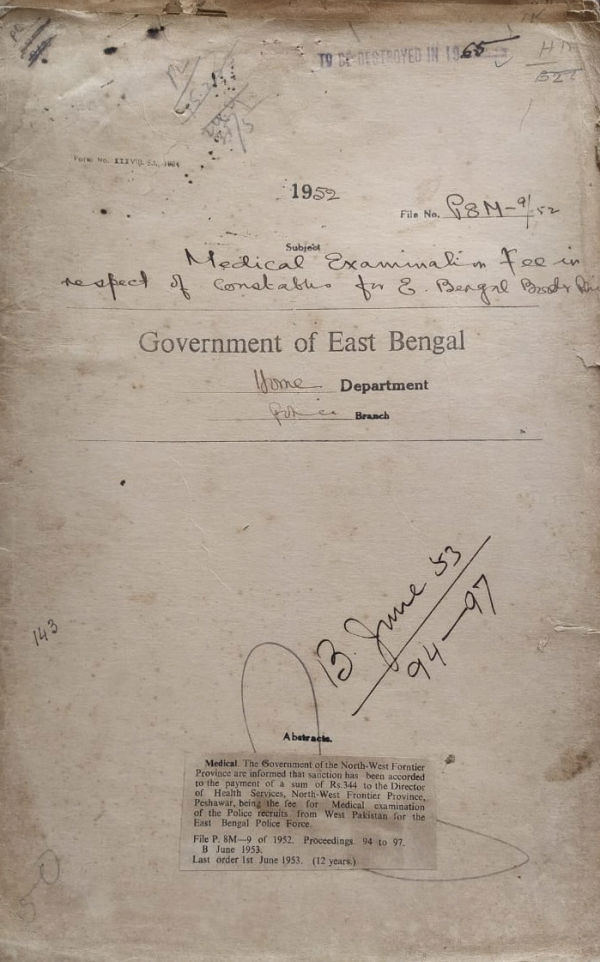 TO BE DESTROYED IN 1965
1952
File No. P8M-9/52
Subject
Medical Examination Fee in
respect of Constables for E. Bengal
Government of East Bengal
Home Department
Police Branch
B. June 53
94-97
143
Abstracts.
Medical. The Government of the North-West Forntier
Province are informed that sanction has been accorded
to the payment of a sum of Rs.344 to the Director
of Health Services, North-West Frontier Province,
Peshawar, being the fee for Medical examination
of the Police recruits from West Pakistan for the
East Bengal Police Force.
File P. 8M—9 of 1952. Proceedings. 94 to 97.
B June 1953.
Last order 1st June 1953. (12 years.)
50